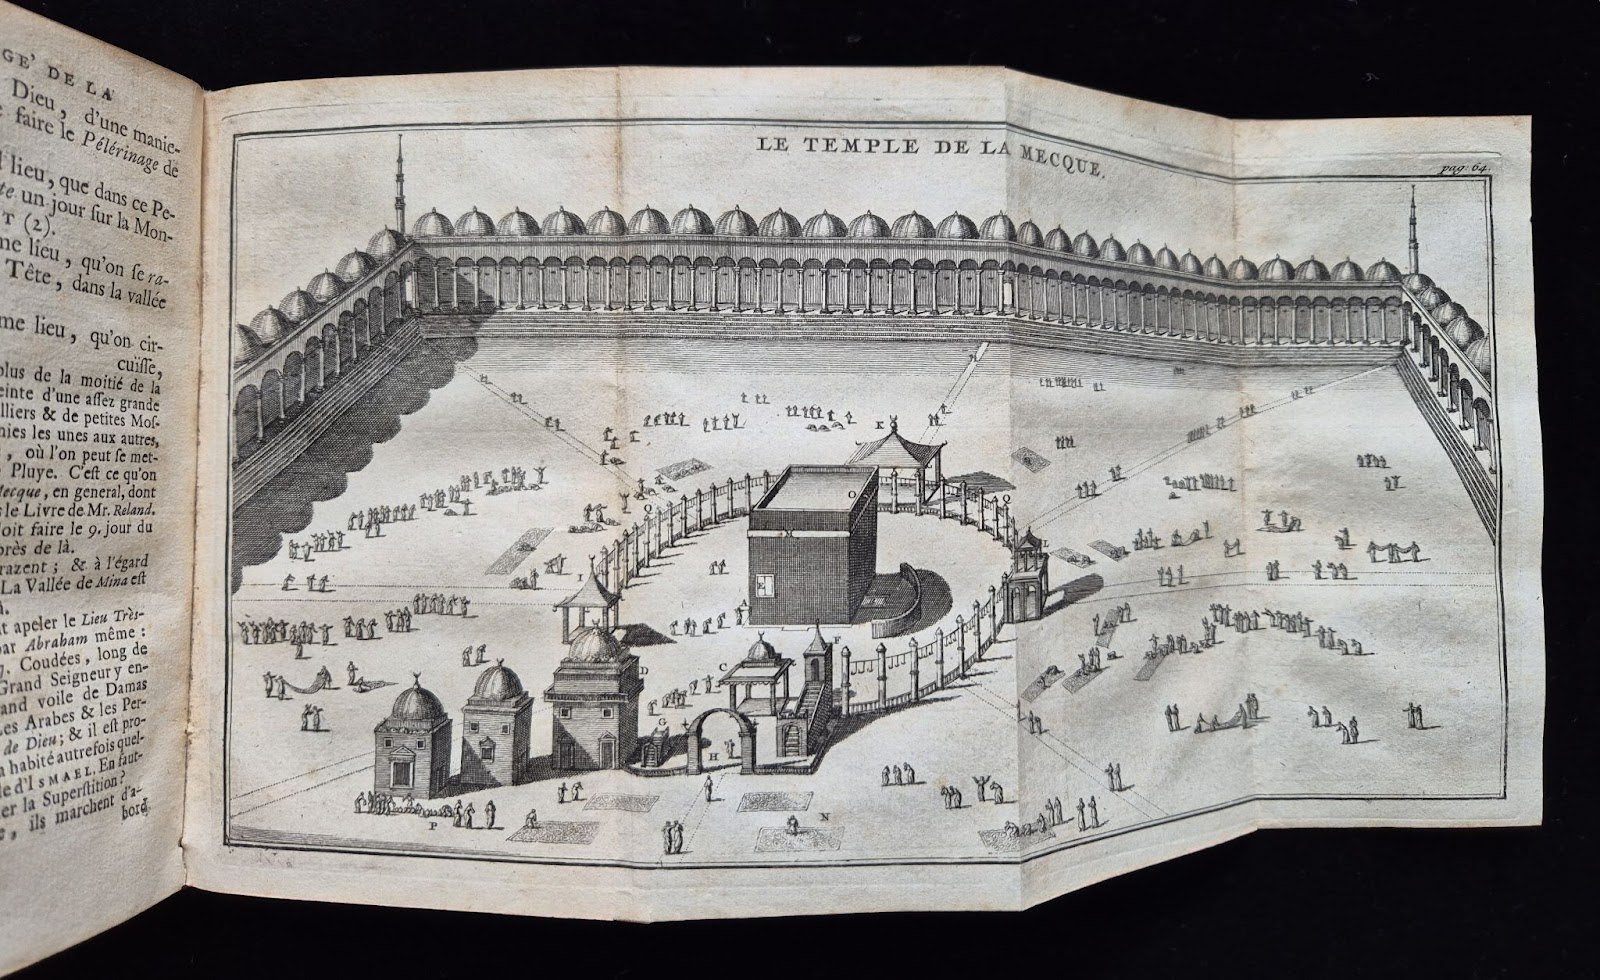 GE' DE LA
Dieu, d'une manie-
faire le Pélérinage de
lieu, que dans ce Pe-
un jour sur la Mon-
T (2).
me lieu, qu'on se ra-
Tête, dans la vallée
me lieu, qu'on cir-
cuïsse,
plus de la moitié de la
einte d'une assez grande
lliers & de petites Mos-
nies les unes aux autres,
, où l'on peut se met-
Pluye. C'est ce qu'on
Mecque, en general, dont
le Livre de Mr. Reland.
doit faire le 9. jour du
près de là.
razent; & à l'égard
La Vallée de Mina est
t apeler le Lieu Très-
par Abraham même:
7. Coudées, long de
Grand Seigneur y en-
and voile de Damas
es Arabes & les Per-
de Dieu; & il est pro-
a habité autrefois quel-
le d'ISMAEL. En faut-
er la Superstition?
, ils marchent d'a-
bord
LE TEMPLE DE LA MECQUE.
pag: 64.
K
O
Q
Q
X
L
I
A
F
C
D
G
H
P
N